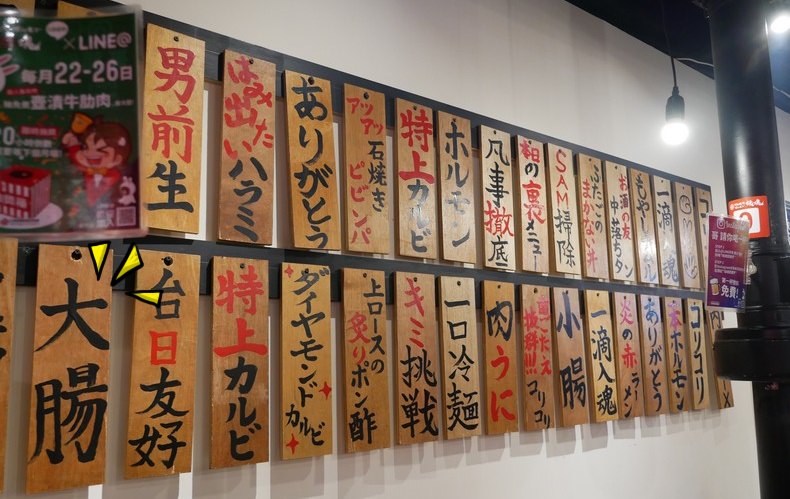 ×LINE@
毎月22-26日
壺漬牛肋肉
男前生
はみ出たいハラミ
ありがとう
アツアツ石焼きビビンバ
特上カルビ
ホルモン
凡事撤底
本日の裏メニュー
SAM掃除
ふたごのまかない丼
お酒の友 中落ちタン
一滴入魂
大腸
台日友好
特上カルビ
ダイヤモンドカルビ
上ロースの炙りポン酢
キミ挑戦
一口冷麺
肉うに
歯ごたえ抜群!!! コリコリ
小腸
一滴入魂
炎の赤ラーメン
ありがとう
本ホルモン
コリコリ